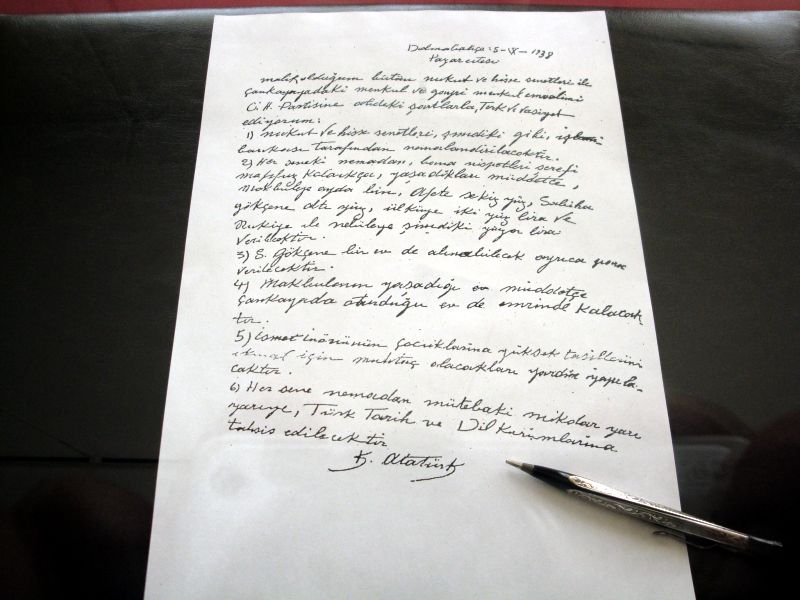 Dolmabahçe: 5-IX-1938
Pazartesi
malik olduğum bütün nukut ve hisse senetleri ile
Çankayadaki menkul ve gayri menkul emvalimi
C. H. Partisine atideki şartlarla, terk ve vasiyet
ediyorum:
1) nukut ve hisse senetleri, şimdiki gibi, iş
bankası tarafından nemalandırılacaktır.
2) Her seneki nemadan, bana nispetleri şerefi
mahfuz kaldıkça, yaşadıkları müddetçe,
Makbuleye ayda bin, Afete sekiz yüz, Sabiha
gökçene altı yüz, ülküye iki yüz lira ve
Rukiye ile nebileye şimdiki yüzer lira
verilecektir.
3) S. Gökçene bir ev de alınabilecek ayrıca para
verilecektir.
4) Makbulenin yaşadığı müddetçe
Çankayada oturduğu ev de emrinde kalacak
tır.
5) İsmet İnönünün çocuklarına yüksek tahsillerini
ikmal için muhtaç olacakları yardım yapıla-
caktır.
6) Her sene nemadan mütebaki miktar yarı
yarıya, Türk Tarih ve Dil Kurumlarına
tahsis edilecektir
K. Atatürk